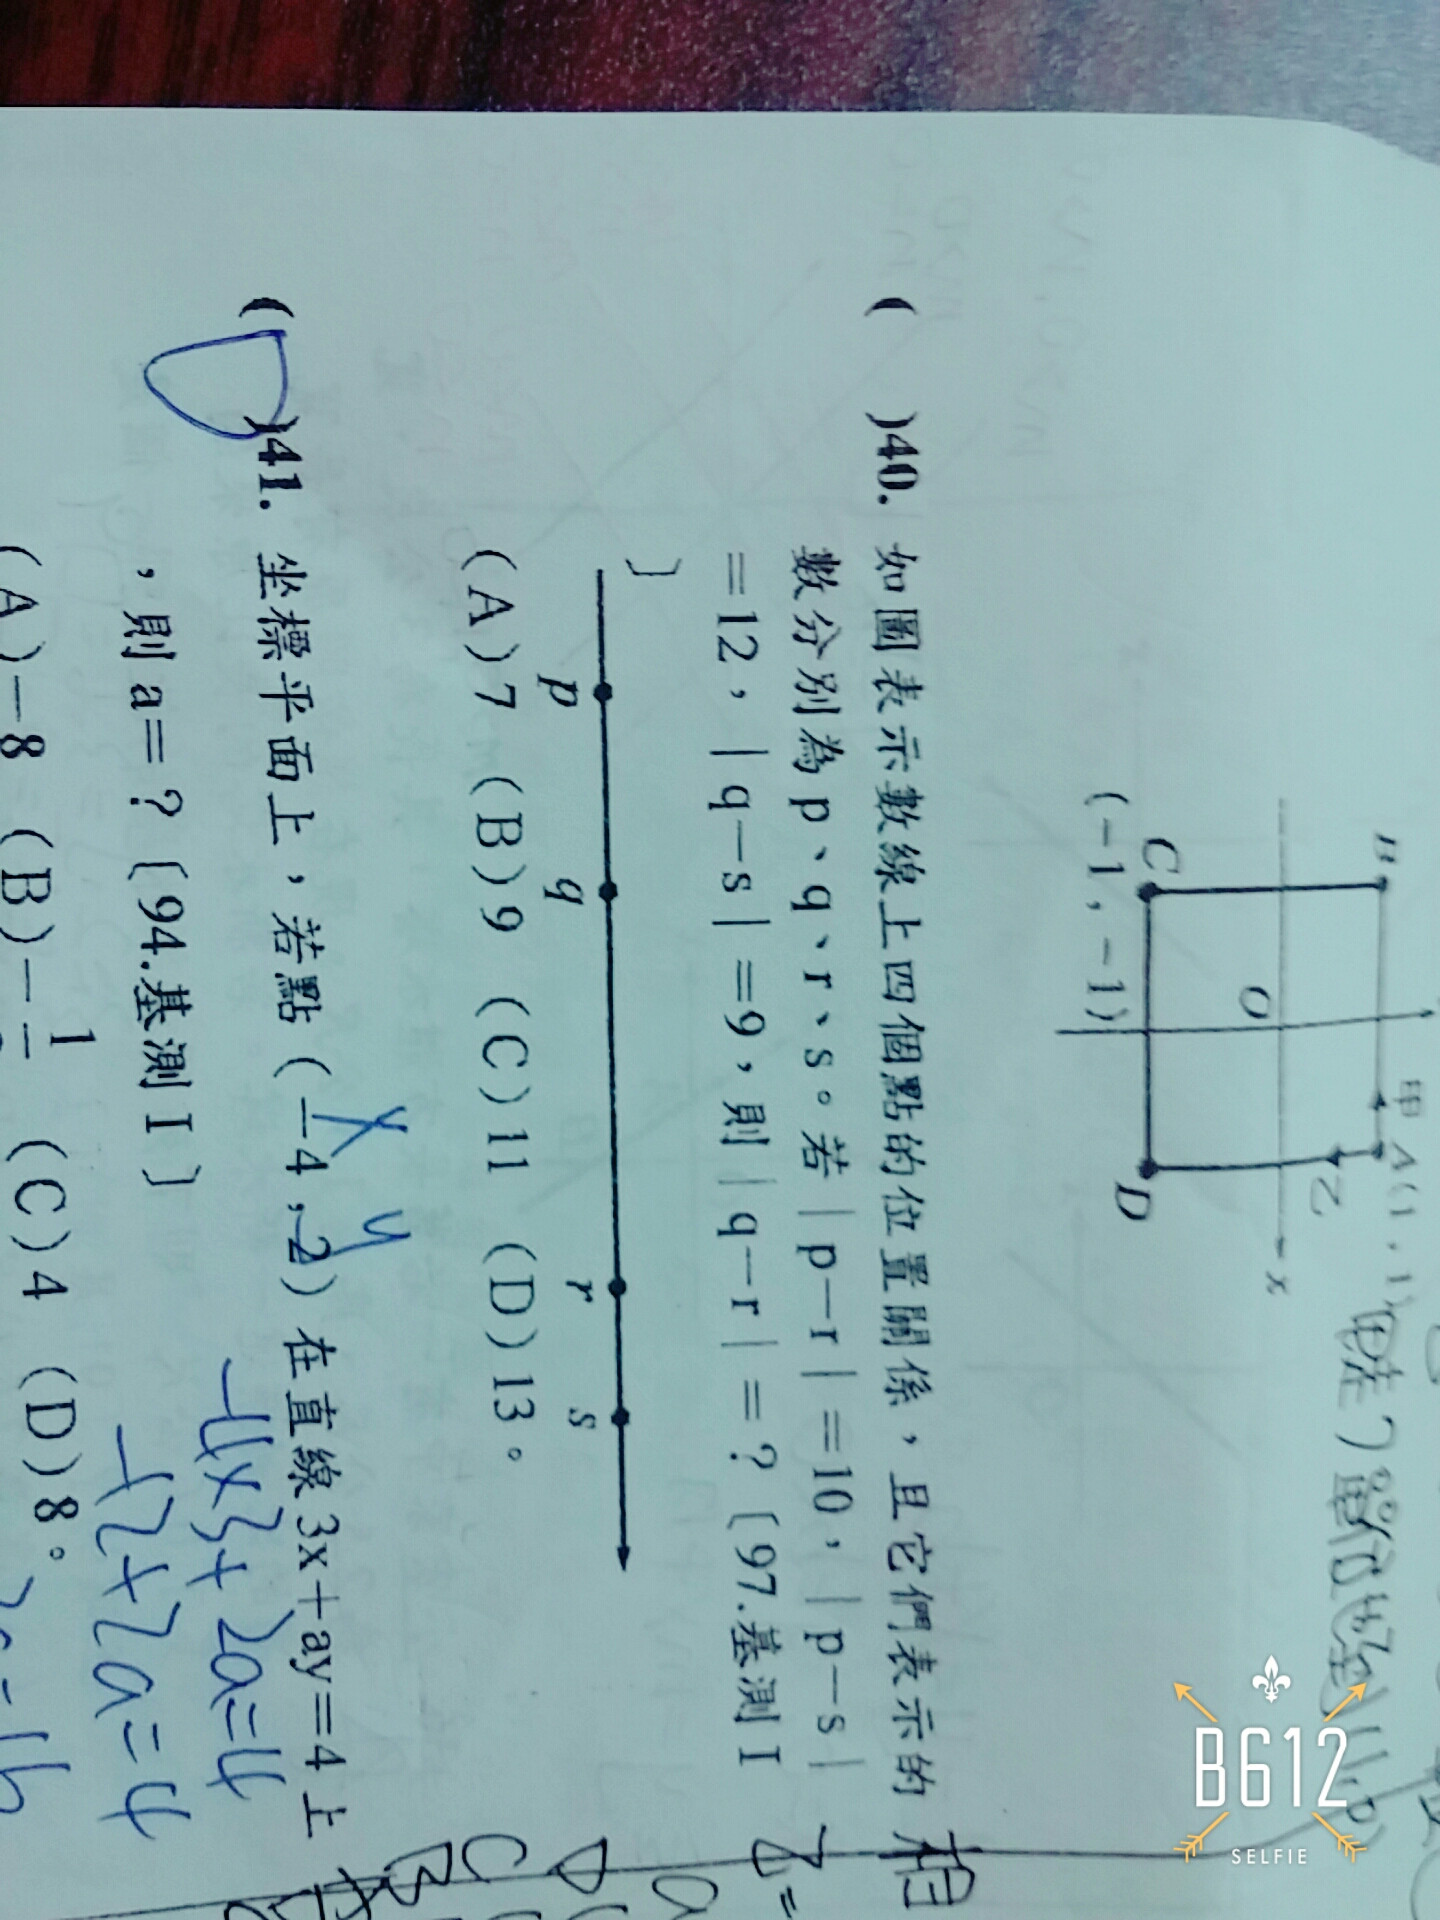 甲
A(1,1)
B
乙
O
x
C
D
(-1,-1)
( )40. 如圖表示數線上四個點的位置關係，且它們表示的
數分別為p、q、r、s。若|p-r|=10，|p-s|
=12，|q-s|=9，則|q-r|=？〔97.基測I
〕
p q r s
(A)7 (B)9 (C)11 (D)13。
x y
( )41. 坐標平面上，若點(-4,2)在直線3x+ay=4上
，則a=？〔94.基測I〕
-4x3+2a=4
-12+2a=4
(C)4 (D)8。
(A)-8
B612
SELFIE